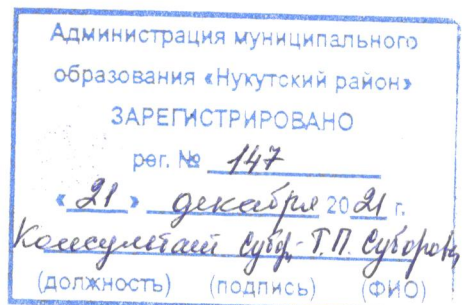 Администрация муниципального
образования «Нукутский район»
ЗАРЕГИСТРИРОВАНО
рег. № 147
«21» декабря 2021 г.
Консультант Т.П. Суборова
(должность) (подпись) (ФИО)